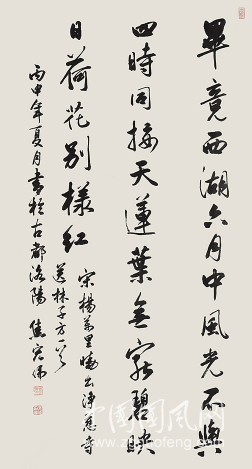 畢竟西湖六月中風光不與
四時同接天蓮葉無窮碧映
日荷花别樣紅
宋楊萬里曉出淨慈寺
送林子方一首
丙申年夏月書於古都洛陽 焦
中国国风网